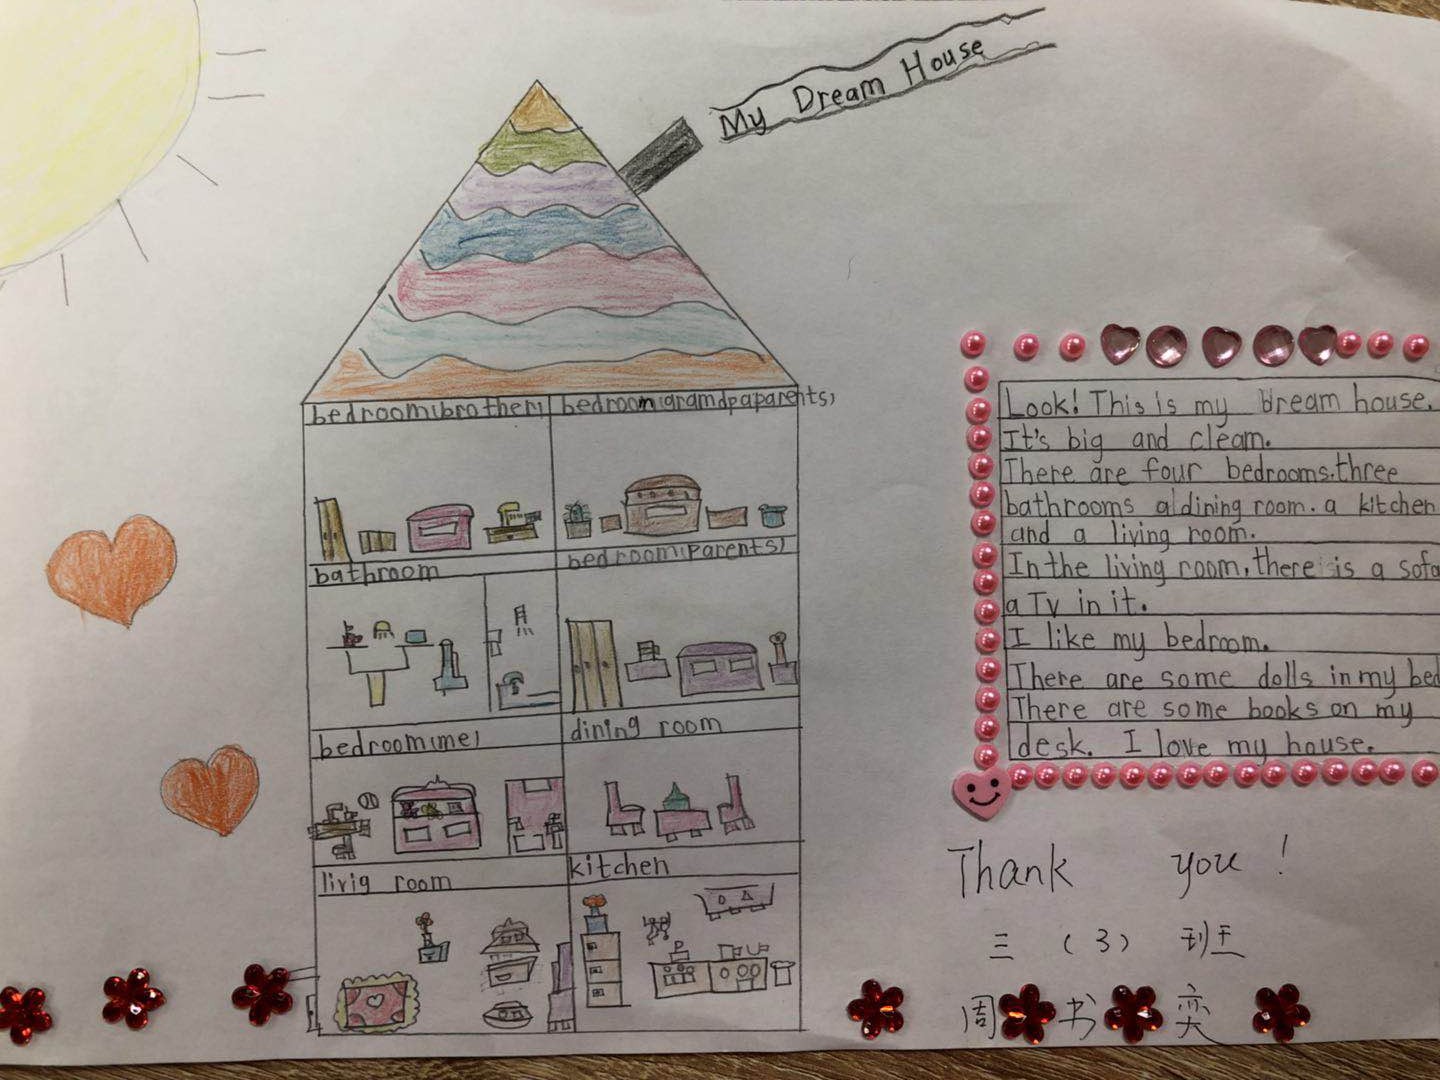 My Dream House
bedroom(brother) bedroom(gramdpaparents)
bathroom bedroom(parents)
bedroom(me) dining room
livig room kitchen
Look! This is my Dream house.
It's big and cleam.
There are four bedrooms.three
bathrooms a dining room. a kitchen
and a living room.
In the living room, there is a sofa
a Tv in it.
I like my bedroom.
There are some dolls in my bed
There are some books on my
desk. I love my house.
Thank you!
三(3)班
周书奕